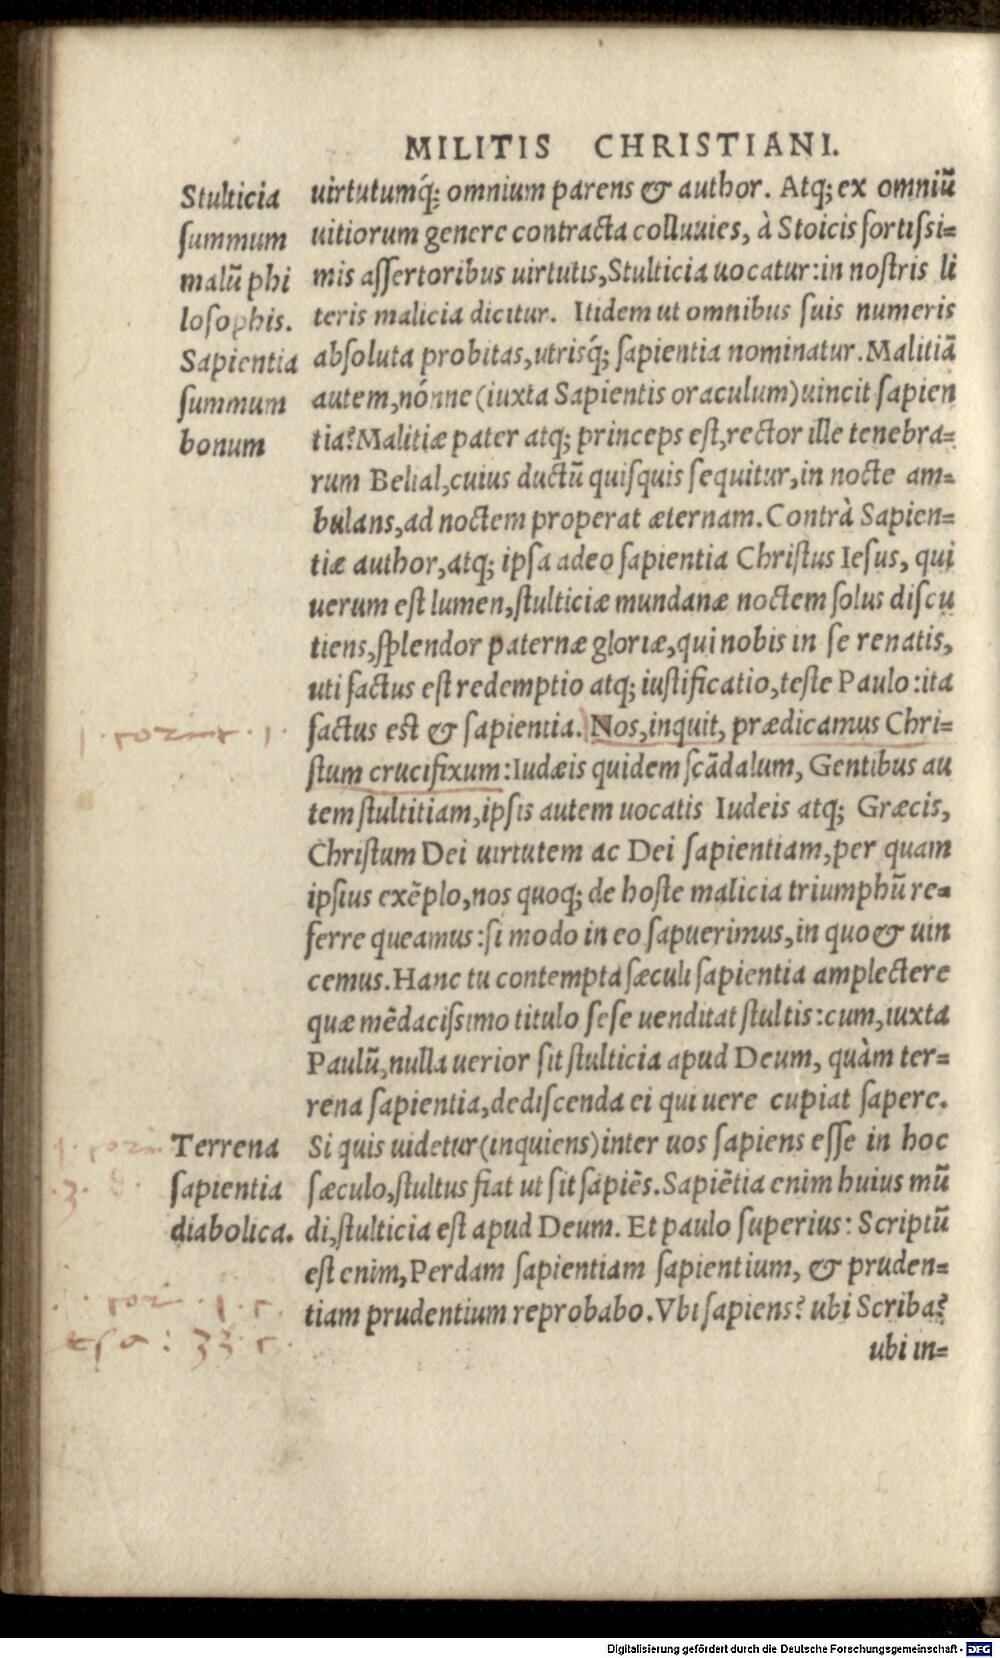 MILITIS CHRISTIANI.
Stulticia
summum
malū phi
losophis.
Sapientia
summum
bonum
uirtutumq́; omnium parens & author. Atq; ex omniū
uitiorum genere contracta colluuies, à Stoicis fortissi-
mis assertoribus uirtutis, Stulticia uocatur: in nostris li
teris malicia dicitur. Itidem ut omnibus suis numeris
absoluta probitas, utrisq́; sapientia nominatur. Malitiā
autem, nónne (iuxta Sapientis oraculum) uincit sapien
tia? Malitiæ pater atq; princeps est, rector ille tenebra-
rum Belial, cuius ductū quisquis sequitur, in nocte am-
bulans, ad noctem properat æternam. Contrà Sapien-
tiæ author, atq; ipsa adeo sapientia Christus Iesus, qui
uerum est lumen, stulticiæ mundanæ noctem solus discu
tiens, splendor paternæ gloriæ, qui nobis in se renatis,
uti factus est redemptio atq; iustificatio, teste Paulo: ita
factus est & sapientia. Nos, inquit, prædicamus Chri-
stum crucifixum: Iudæis quidem scādalum, Gentibus au
tem stultitiam, ipsis autem uocatis Iudeis atq; Græcis,
Christum Dei uirtutem ac Dei sapientiam, per quam
ipsius exēplo, nos quoq; de hoste malicia triumphū re-
ferre queamus: si modo in eo sapuerimus, in quo & uin
cemus. Hanc tu contempta sæculi sapientia amplectere
quæ mēdacissimo titulo sese uenditat stultis: cum, iuxta
Paulū, nulla uerior sit stulticia apud Deum, quàm ter-
rena sapientia, dediscenda ei qui uere cupiat sapere.
Terrena
sapientia
diabolica.
Si quis uidetur (inquiens) inter uos sapiens esse in hoc
sæculo, stultus fiat ut sit sapiēs. Sapiētia enim huius mū
di, stulticia est apud Deum. Et paulo superius: Scriptū
est enim, Perdam sapientiam sapientium, & pruden-
tiam prudentium reprobabo. Vbi sapiens? ubi Scriba?
ubi in-
1. corint. 1.
1. corin
3.
cor. 1.
esa: 33.
Digitalisierung gefördert durch die Deutsche Forschungsgemeinschaft - DFG